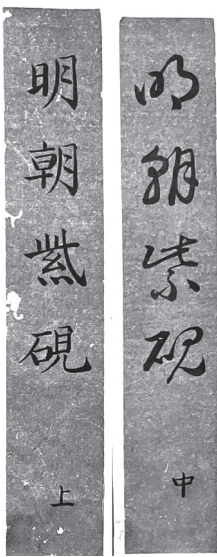 明朝紫硯
中
明朝紫硯
上